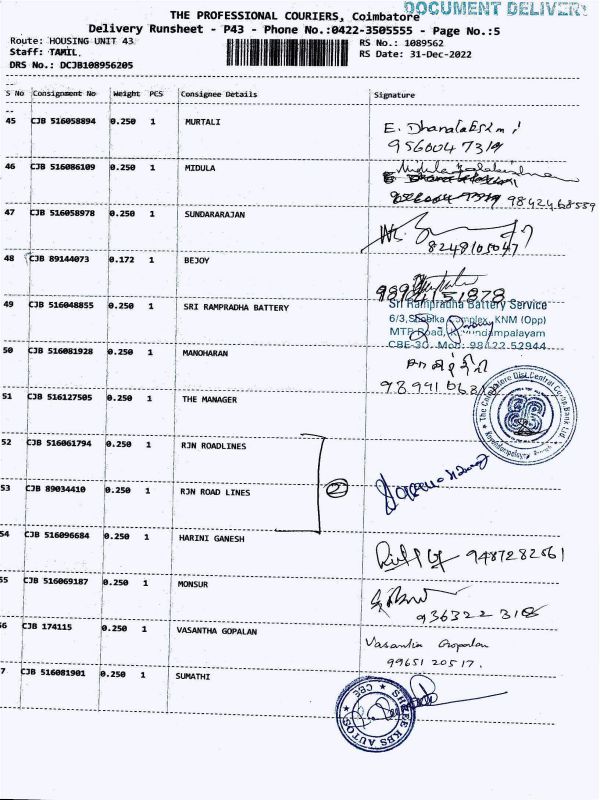 DOCUMENT DELIVERY
THE PROFESSIONAL COURIERS, Coimbatore
Delivery Runsheet - P43 - Phone No.:0422-3505555 - Page No.:5
Route: HOUSING UNIT 43
RS No.: 1089562
Staff: TAMIL.
RS Date: 31-Dec-2022
DRS No.: DCJB108956205
S No Consignment No Weight PCS Consignee Details Signature
45 CJB 516058894 0.250 1 MURTALI
E. Dhanalakshmi
9560047319
46 CJB 516086109 0.250 1 MIDULA
9842468559
47 CJB 516058978 0.250 1 SUNDARARAJAN
8248105047
48 CJB 89144073 0.172 1 BEJOY
49 CJB 516048855 0.250 1 SRI RAMPRADHA BATTERY
Sri Rampradha Battery Service
6/3, Complex, KNM (Opp)
MTP Road,
CBE-30. Mob: 98422 52944
50 CJB 516081928 0.250 1 MANOHARAN
51 CJB 516127505 0.250 1 THE MANAGER
The Coimbatore Dist. Central Co-op. Bank Ltd.
52 CJB 516061794 0.250 1 RJN ROADLINES
2
53 CJB 89034410 0.250 1 RJN ROAD LINES
54 CJB 516096684 0.250 1 HARINI GANESH
9487282561
55 CJB 516069187 0.250 1 MONSUR
56 CJB 174115 0.250 1 VASANTHA GOPALAN
Vasantha Gopalan
99651 20517.
7 CJB 516081901 0.250 1 SUMATHI
SHREE KBS AUTOS CBE